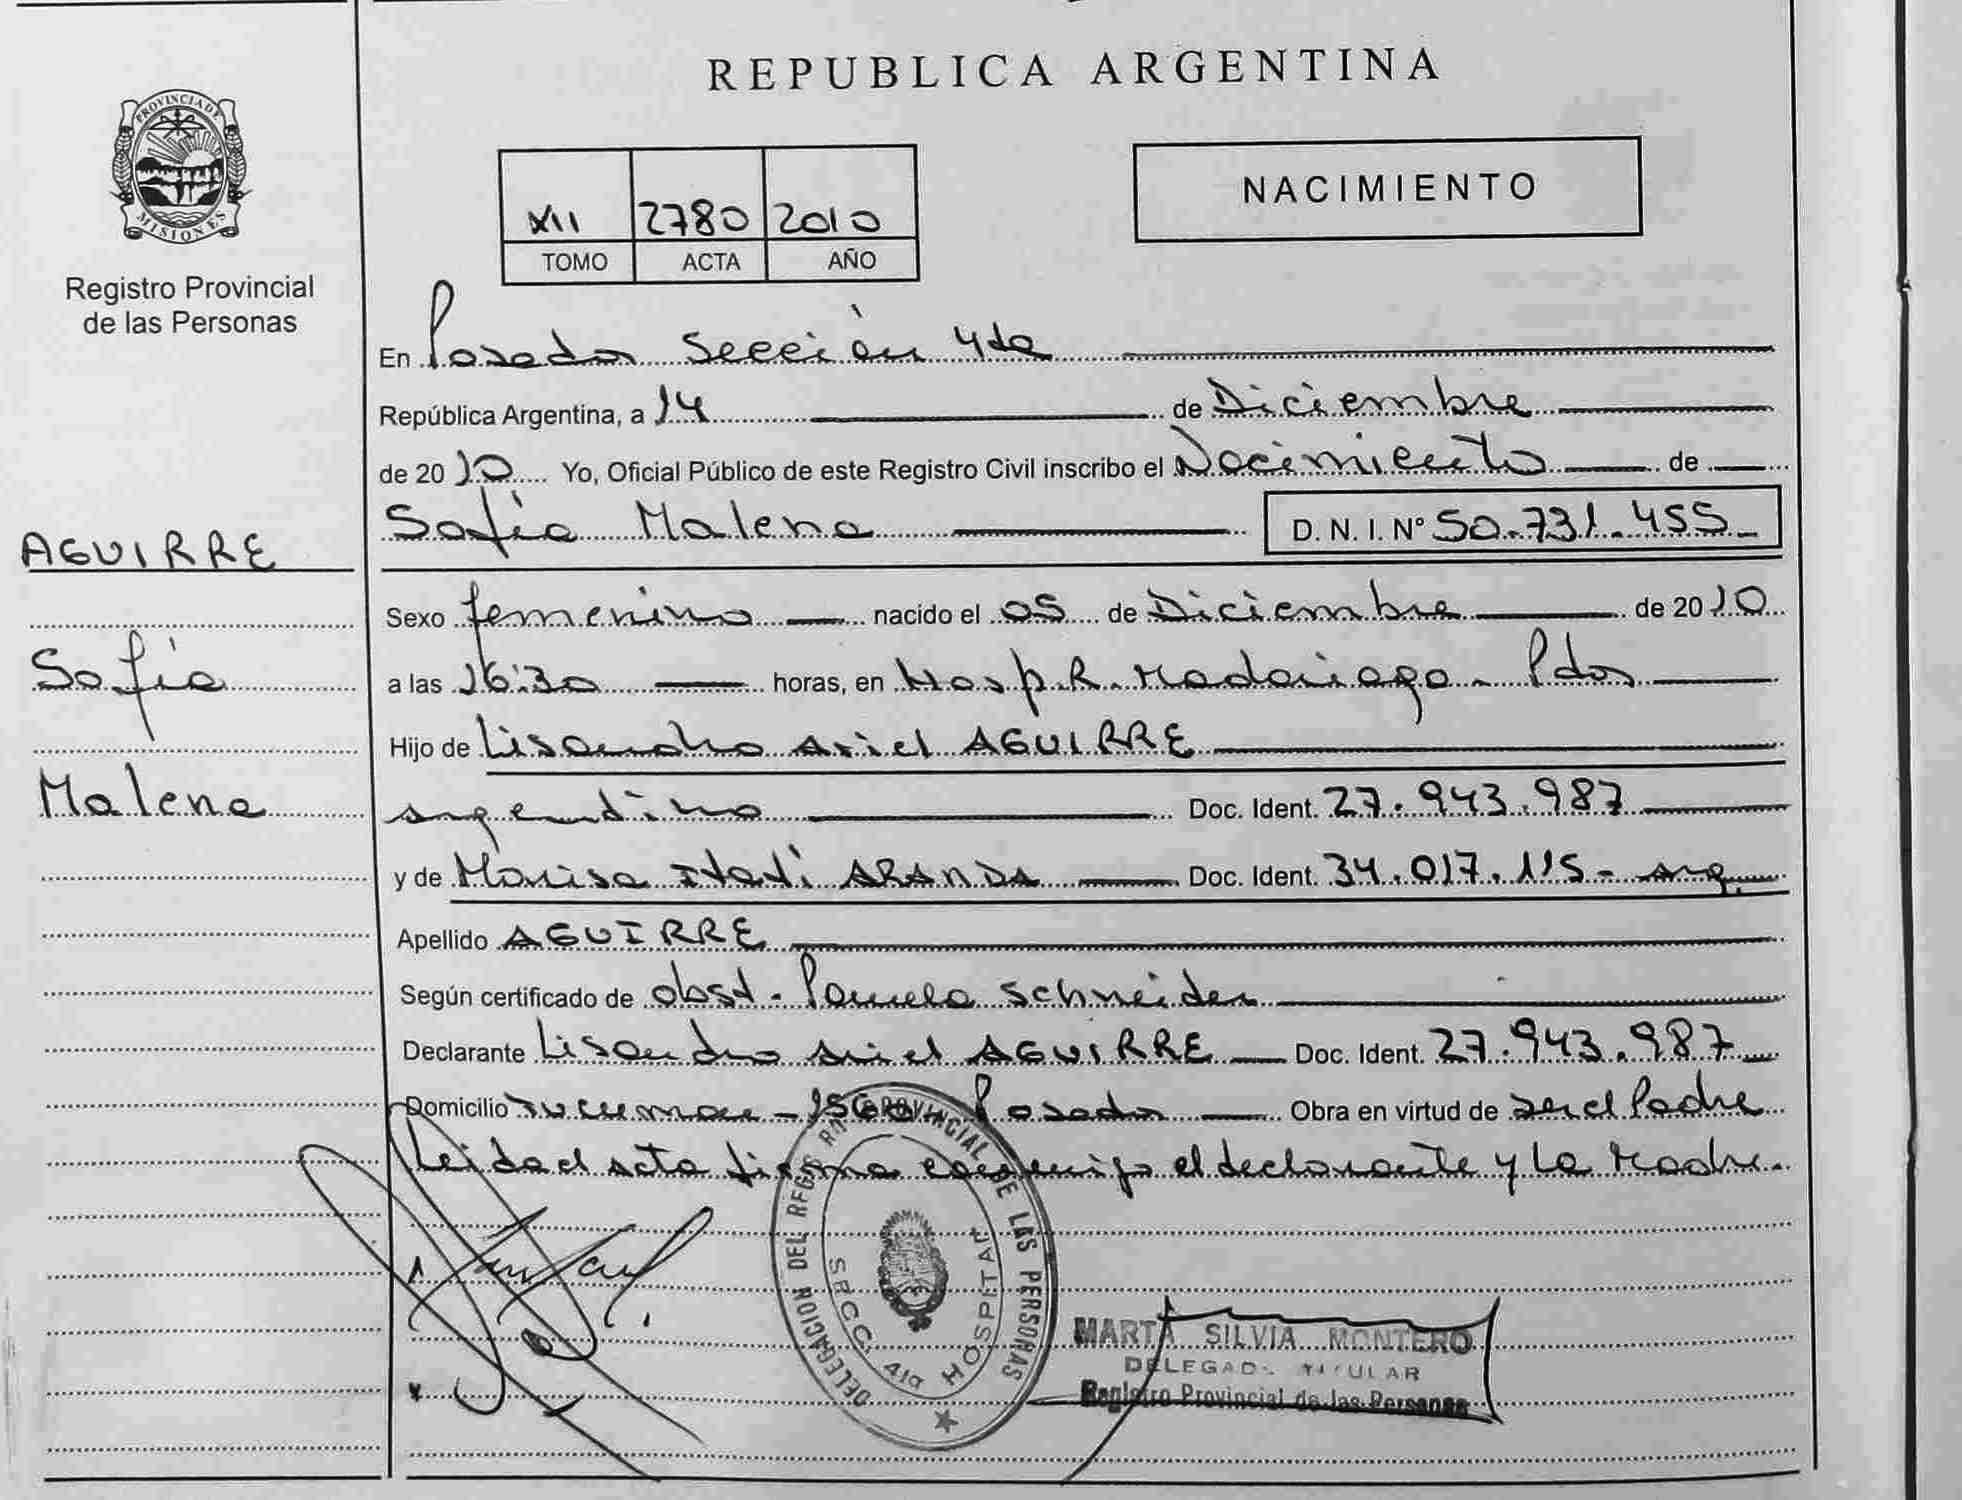 REPUBLICA ARGENTINA
PROVINCIA DE
MISIONES
Registro Provincial
de las Personas
XII 2780 2010
TOMO ACTA AÑO
NACIMIENTO
En Posadas Sección 4ta
República Argentina, a 14 de Diciembre
de 2010 Yo, Oficial Público de este Registro Civil inscribo el Nacimiento de
Sofía Malena D. N. I. Nº 50.731.455
AGUIRRE
Sofía
Malena
Sexo femenino nacido el 05 de Diciembre de 2010
a las 16:30 horas, en Hosp. R. Madariaga - Pdas
Hijo de Lisandro Ariel AGUIRRE
argentino Doc. Ident. 27.943.987
y de Marisa Itatí ARANDA Doc. Ident. 34.017.115 - arg.
Apellido AGUIRRE
Según certificado de obst. Pamela Schneider
Declarante Lisandro Ariel AGUIRRE Doc. Ident. 27.943.987
Domicilio Tucuman - 1560 - Posadas Obra en virtud de ser el Padre
Leida el acta firma conmigo el declarante y la Madre.
DELEGACION DEL REGISTRO PROVINCIAL DE LAS PERSONAS
SECC. 4ta HOSPITAL
MARTA SILVIA MONTERO
DELEGADA TITULAR
Registro Provincial de las Personas